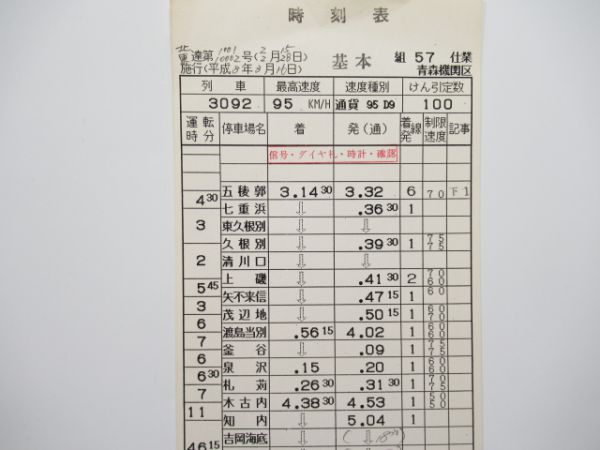 時刻表
達第1001号(2月15日)
10002 2 28
施行(平成8年3月16日)
基本
組 57 仕業
青森機関区
列車 最高速度 速度種別 けん引定数
3092 95 KM/H 通貨 95 D9 100
運転時分 停車場名 着 発(通) 着発線 制限速度 記事
信号・ダイヤ札・時計・確認
五稜郭 3.14 30 3.32 6 70 下1
4 30
七重浜 ⇩ .36 30 1
東久根別 ⇩ ⇩
3
久根別 ⇩ .39 30 1 75 75
清川口 ⇩ ⇩
2
上磯 ⇩ .41 30 2 70 60
5 45
矢不来信 ⇩ .47 15 1 60
3
茂辺地 ⇩ .50 15 1 60 70
6
渡島当別 .56 15 4.02 1 60 60
7
釜谷 ⇩ .09 1 75 75
6
泉沢 .15 .20 1 60 70
6 30
札苅 .26 30 .31 30 1 70 75
7
木古内 4.38 30 4.53 1 50 50
11
知内 ⇩ 5.04 1
吉岡海底 ⇩
46 15